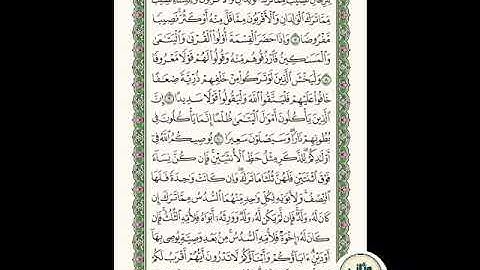 لِّلرِّجَالِ نَصِيبٌ مِّمَّا تَرَكَ ٱلْوَٰلِدَانِ وَٱلْأَقْرَبُونَ وَلِلنِّسَآءِ نَصِيبٌ
مِّمَّا تَرَكَ ٱلْوَٰلِدَانِ وَٱلْأَقْرَبُونَ مِمَّا قَلَّ مِنْهُ أَوْ كَثُرَ نَصِيبًا
مَّفْرُوضًا ۝٧ وَإِذَا حَضَرَ ٱلْقِسْمَةَ أُو۟لُوا۟ ٱلْقُرْبَىٰ وَٱلْيَتَٰمَىٰ
وَٱلْمَسَٰكِينُ فَٱرْزُقُوهُم مِّنْهُ وَقُولُوا۟ لَهُمْ قَوْلًا مَّعْرُوفًا
۝٨ وَلْيَخْشَ ٱلَّذِينَ لَوْ تَرَكُوا۟ مِنْ خَلْفِهِمْ ذُرِّيَّةً ضِعَٰفًا
خَافُوا۟ عَلَيْهِمْ فَلْيَتَّقُوا۟ ٱللَّهَ وَلْيَقُولُوا۟ قَوْلًا سَدِيدًا ۝٩ إِنَّ
ٱلَّذِينَ يَأْكُلُونَ أَمْوَٰلَ ٱلْيَتَٰمَىٰ ظُلْمًا إِنَّمَا يَأْكُلُونَ فِى
بُطُونِهِمْ نَارًا وَسَيَصْلَوْنَ سَعِيرًا ۝١٠ يُوصِيكُمُ ٱللَّهُ فِىٓ
أَوْلَٰدِكُمْ لِلذَّكَرِ مِثْلُ حَظِّ ٱلْأُنثَيَيْنِ فَإِن كُنَّ نِسَآءً
فَوْقَ ٱثْنَتَيْنِ فَلَهُنَّ ثُلُثَا مَا تَرَكَ وَإِن كَانَتْ وَٰحِدَةً فَلَهَا
ٱلنِّصْفُ وَلِأَبَوَيْهِ لِكُلِّ وَٰحِدٍ مِّنْهُمَا ٱلسُّدُسُ مِمَّا تَرَكَ إِن
كَانَ لَهُۥ وَلَدٌ فَإِن لَّمْ يَكُن لَّهُۥ وَلَدٌ وَوَرِثَهُۥٓ أَبَوَاهُ فَلِأُمِّهِ ٱلثُّلُثُ فَإِن
كَانَ لَهُۥٓ إِخْوَةٌ فَلِأُمِّهِ ٱلسُّدُسُ مِنۢ بَعْدِ وَصِيَّةٍ يُوصِى بِهَآ
أَوْ دَيْنٍ ءَابَآؤُكُمْ وَأَبْنَآؤُكُمْ لَا تَدْرُونَ أَيُّهُمْ أَقْرَبُ لَكُمْ